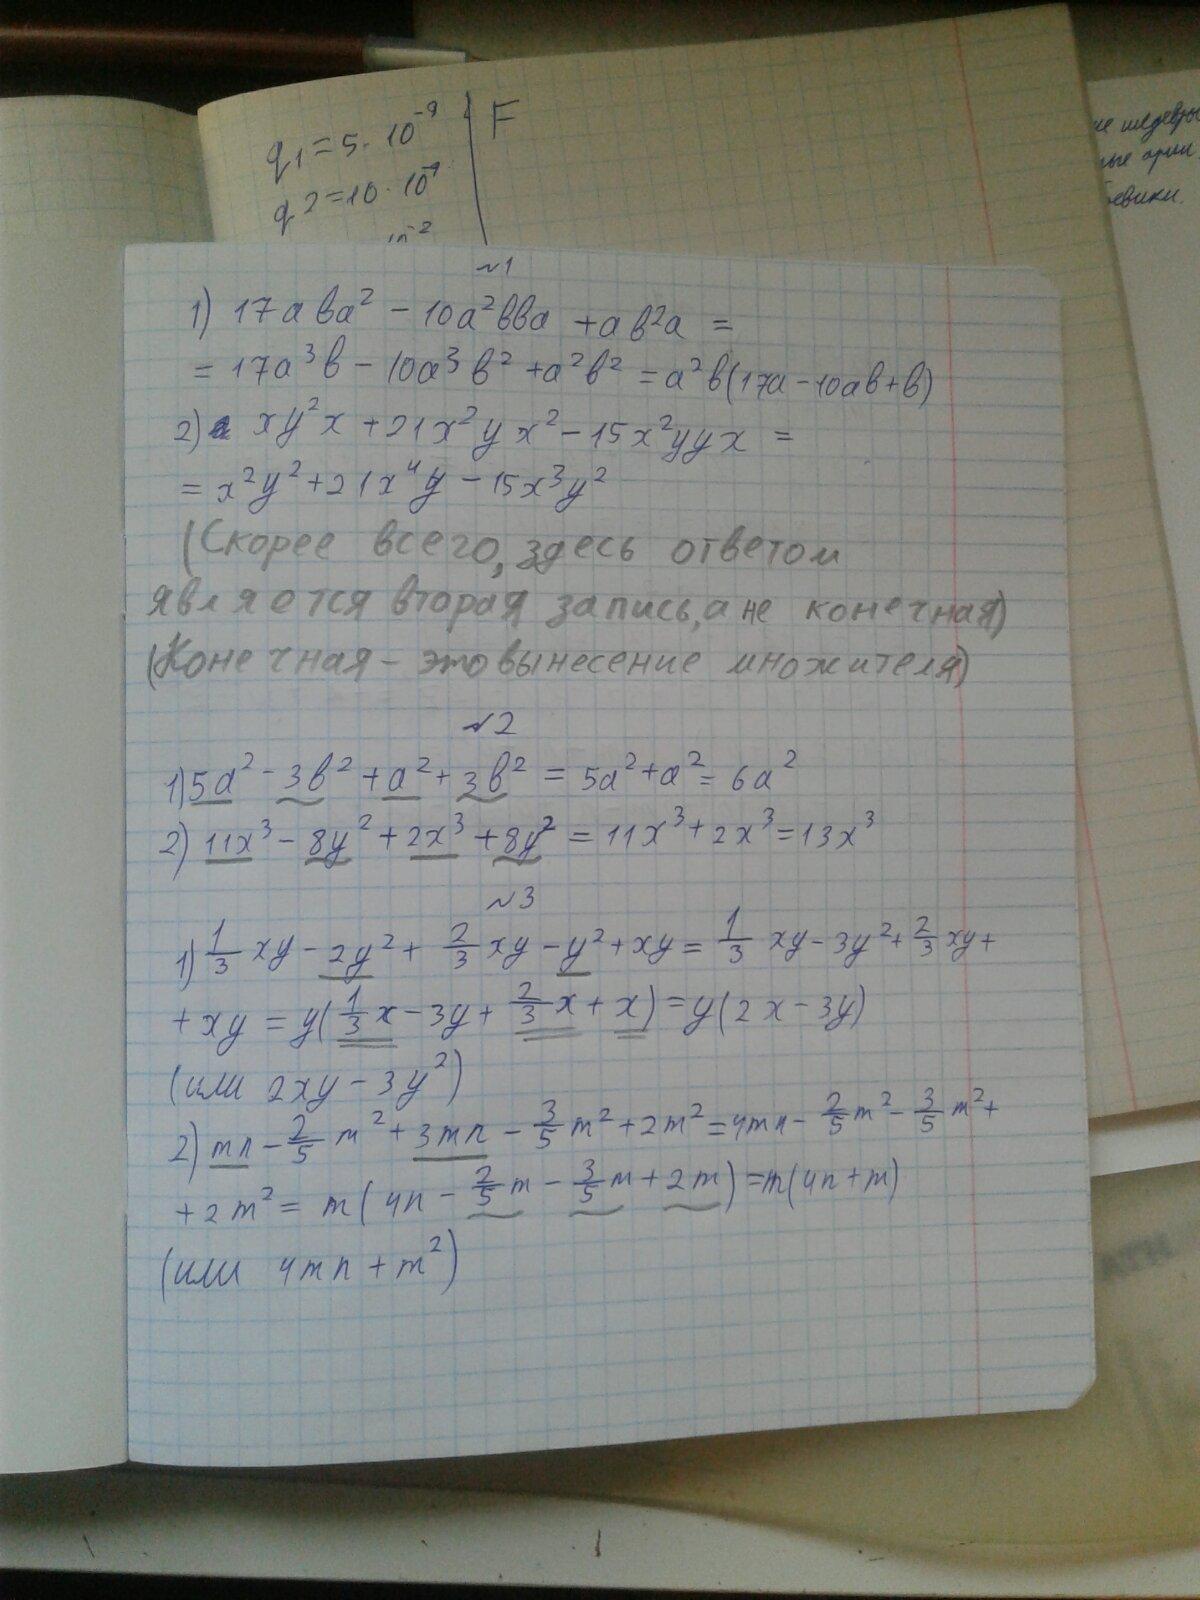 q1=5·10⁻⁹ F
q2=10·10⁻⁹
10⁻²
ие шедевры
ные арии
боевики.
№1
1) 17aba² - 10a²bba + ab²a =
= 17a³b - 10a³b² + a²b² = a²b(17a - 10ab + b)
2) xy²x + 21x²yx² - 15x²yyx =
= x²y² + 21x⁴y - 15x³y²
(Скорее всего, здесь ответом
является вторая запись, а не конечная)
(Конечная - это вынесение множителя)
№2
1) 5a² - 3b² + a² + 3b² = 5a² + a² = 6a²
2) 11x³ - 8y² + 2x³ + 8y² = 11x³ + 2x³ = 13x³
№3
1) 1/3 xy - 2y² + 2/3 xy - y² + xy = 1/3 xy - 3y² + 2/3 xy +
+ xy = y(1/3 x - 3y + 2/3 x + x) = y(2x - 3y)
(или 2xy - 3y²)
2) mn - 2/5 m² + 3mn - 3/5 m² + 2m² = 4mn - 2/5 m² - 3/5 m² +
+ 2m² = m(4n - 2/5 m - 3/5 m + 2m) = m(4n + m)
(или 4mn + m²)